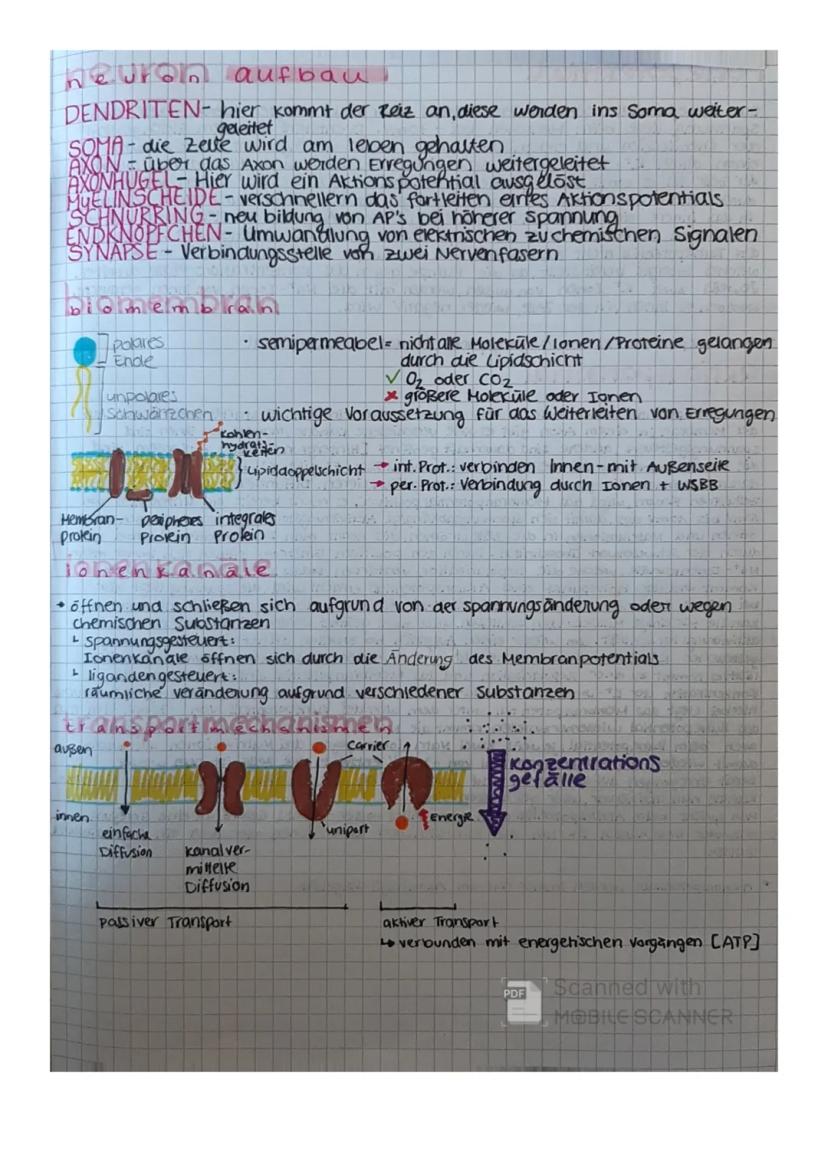 neuron aufbau
DENDRITEN- hier kommt der Reiz an, diese werden ins Soma weiter-
geleitet
SOMA - die Zelle wird am leben gehalten
AXON - über das Axon werden Erregungen weitergeleitet
AXONHÜGEL - Hier wird ein Aktionspotential ausgelöst
MYELINSCHEIDE - verschnellern das fortleiten eines Aktionspotentials
SCHNÜRRING - neu bildung von AP's bei höherer spannung
ENDKNÖPFCHEN - Umwandlung von elektrischen zu chemischen Signalen
SYNAPSE - Verbindungsstelle von zwei Nervenfasern
biomembran
polares
Ende
unpolares
Schwänzchen
· semipermeabel = nicht alle Moleküle/Ionen/Proteine gelangen
durch die Lipidschicht
✓ O₂ oder CO₂
✗ größere Moleküle oder Ionen
· wichtige Voraussetzung für das Weiterleiten von Erregungen
Kohlen-
hydrat-
ketten
Lipiddoppelschicht
→ int. Prot.: verbinden Innen- mit Außenseite
→ per. Prot.: Verbindung durch Ionen + WSBB
Membran-
protein
peripheres
Protein
integrales
Protein
ionenkanäle
• öffnen und schließen sich aufgrund von der spannungsänderung oder wegen
chemischen Substanzen
↳ spannungsgesteuert:
Ionenkanäle öffnen sich durch die Änderung des Membranpotentials
↳ ligandengesteuert:
räumliche veränderung aufgrund verschiedener Substanzen
transportmechanismen
außen
Carrier
Konzentrations
gefälle
innen
einfache
Diffusion
Kanalver-
mittelte
Diffusion
uniport
Energie
passiver Transport
aktiver Transport
↳ verbunden mit energetischen vorgängen [ATP]
PDF
Scanned with
MOBILE SCANNER